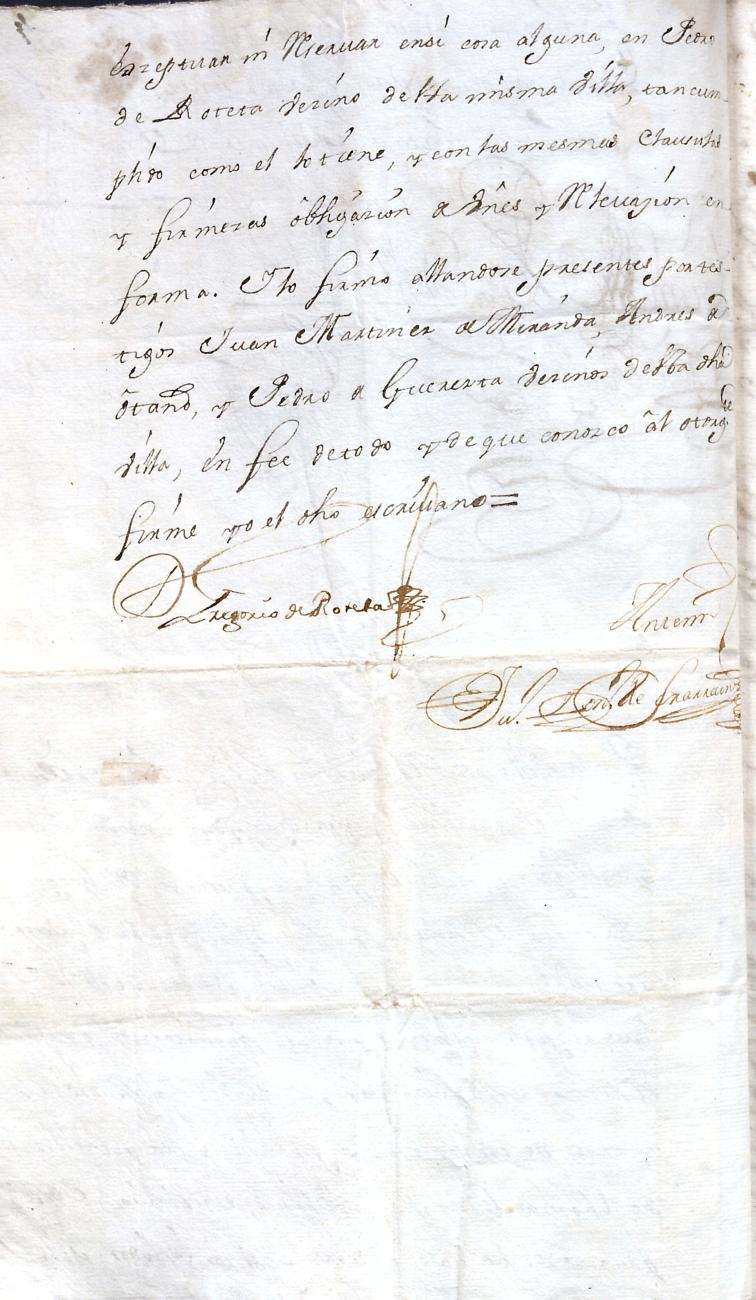 exzeptuar ni Reseruar ensi cosa alguna, en Pedro
de Roteta vezino de lla misma villa, tancum-
plido como el lo tiene, y con las mesmas Clausulas
y firmezas obligazion de vnes y Releuazion en
forma. Y lo firmo allandose presentes por tes-
tigos Juan Martinez de Miranda, Andres de
otaño, y Pedro de Guezerta vezinos desta dha
villa, en fee de todo y de que conozco al otorgte
firme yo el dho escriuano=
Gregorio de Roteta
Antemi